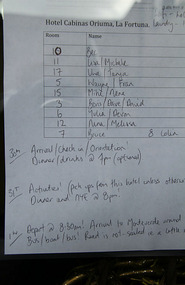 Hotel Cabinas Oriuma, La Fortuna.
Room Name
10 Bec
11 Lisa / Michele
17 Tanya
5 Wayne / Fran
15 Mike / Rena
3 Ross / Dave / David
6 Julia / Declan
12 Anna / Melissa
7 Bruce 8 Colin
30th Arrival / check in / Orientation
Dinner / drinks @ 7pm (optional)
31st Activities pick ups from this hotel unless otherwise
Dinner and NYE @ 8pm.
1st Depart @ 8:30am. Arrival to Monteverde around
Bus / boat / bus. Road is not sealed so a little